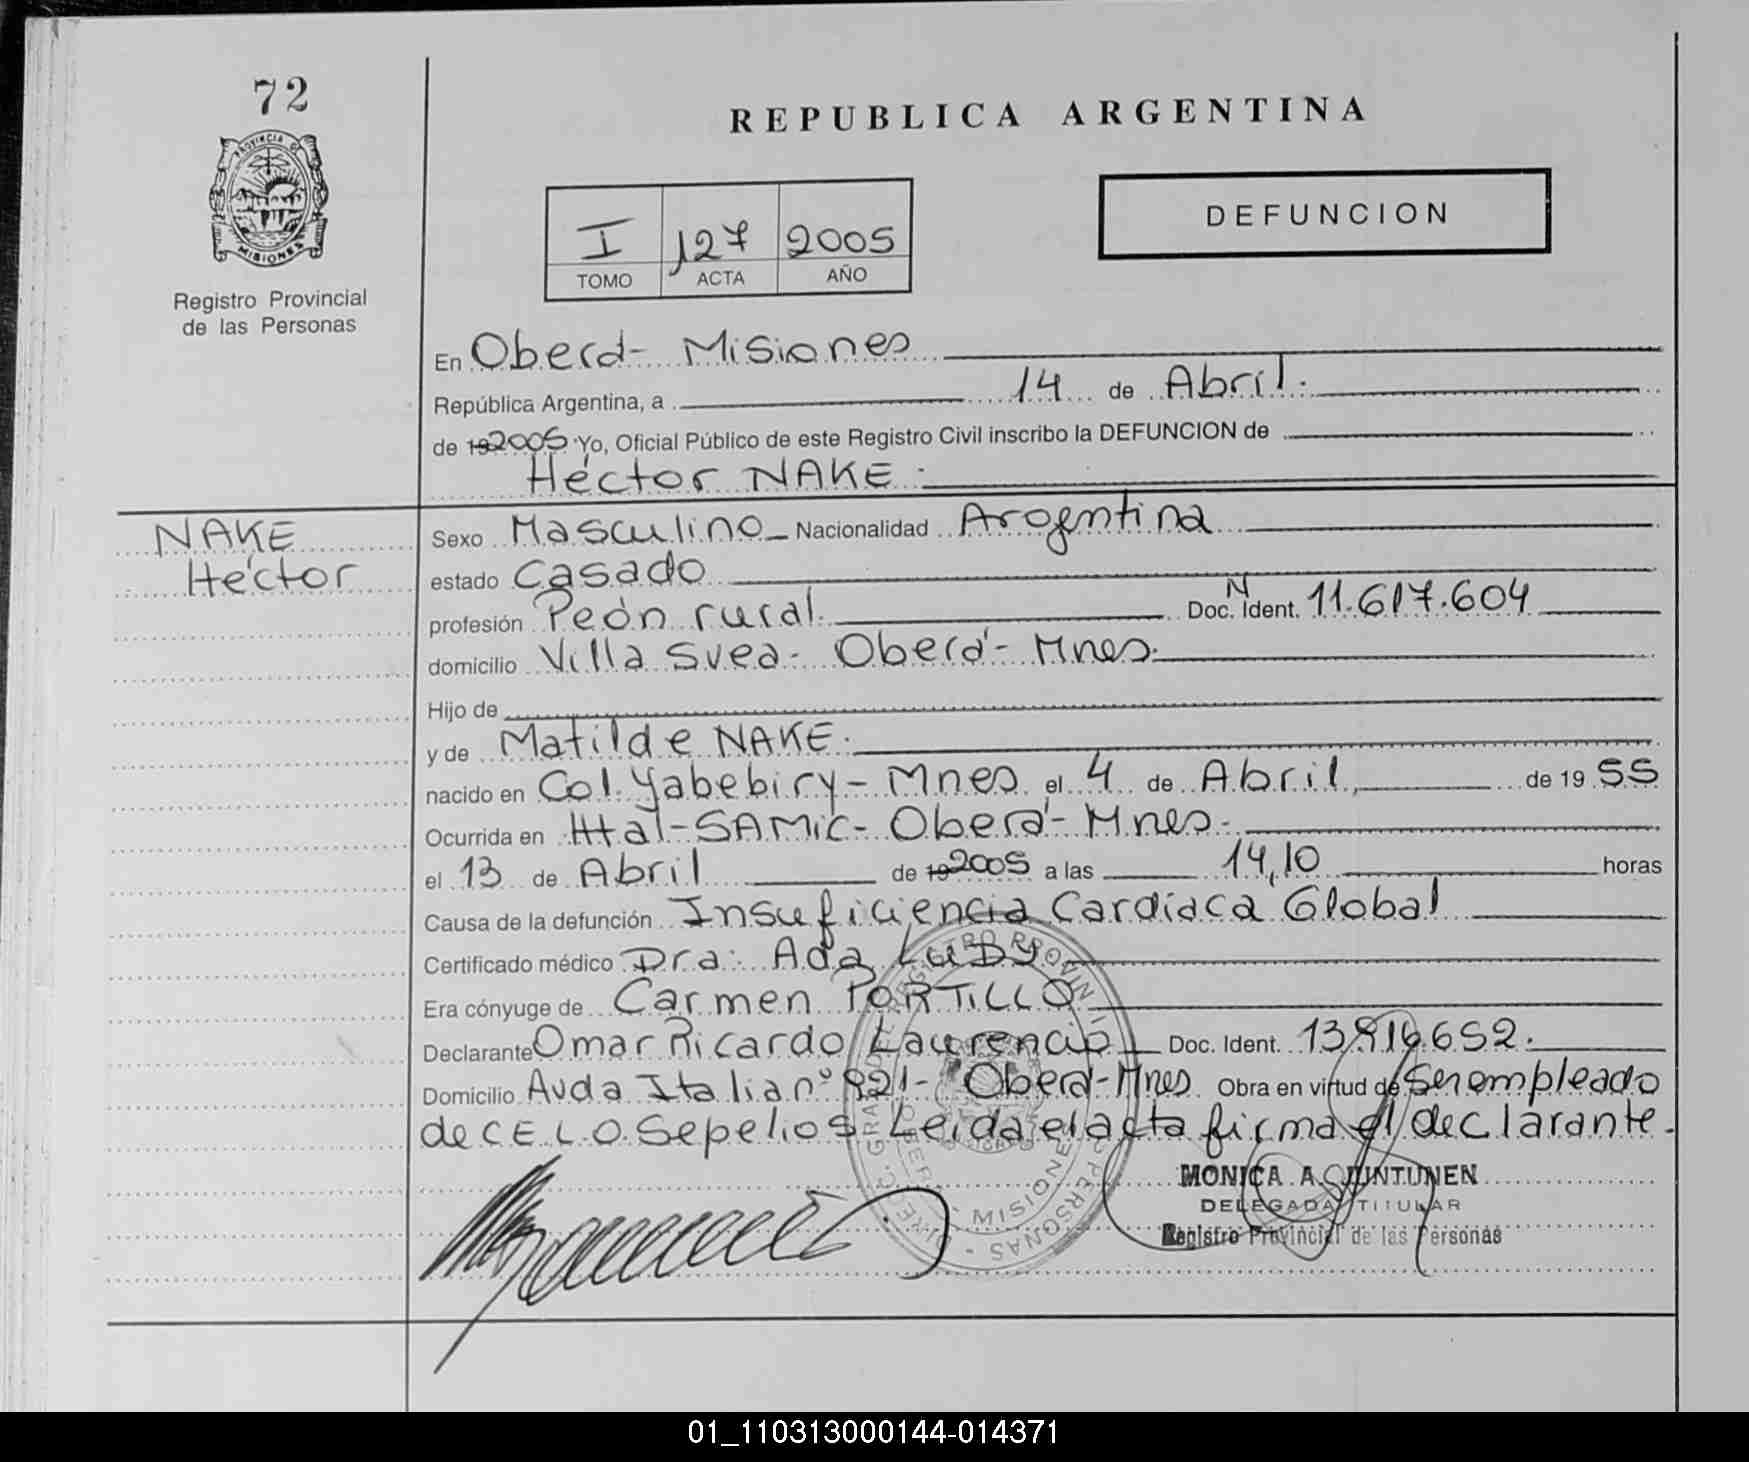 72
PROVINCIA DE
MISIONES
Registro Provincial
de las Personas
REPUBLICA ARGENTINA
I 127 2005
TOMO ACTA AÑO
DEFUNCION
En Oberá- Misiones
República Argentina, a 14 de Abril.
de 19 2005 Yo, Oficial Público de este Registro Civil inscribo la DEFUNCION de
Héctor NAKE.
NAKE
Héctor
Sexo Masculino Nacionalidad Argentina
estado Casado
profesión Peón rural Doc. N Ident. 11.617.604
domicilio Villa Svea- Oberá- Mnes.
Hijo de
y de Matilde NAKE.
nacido en Col. Yabebiry- Mnes el 4 de Abril, de 19 55
Ocurrida en Htal-SAMIC- Oberá- Mnes.
el 13 de Abril de 19 2005 a las 14,10 horas
Causa de la defunción Insuficiencia Cardíaca Global
Certificado médico Dra. Ada LUBY
Era cónyuge de Carmen PORTILLO
Declarante Omar Ricardo Laurencio Doc. Ident.
Domicilio Avda Italia nº 921- Oberá-Mnes Obra en virtud de Ser empleado
de C.E.L.O. Sepelios Leída el acta firma el declarante.
MONICA A. QUINTUNEN
DELEGADA TITULAR
Registro Provincial de las Personas
MISIONES
01_110313000144-014371